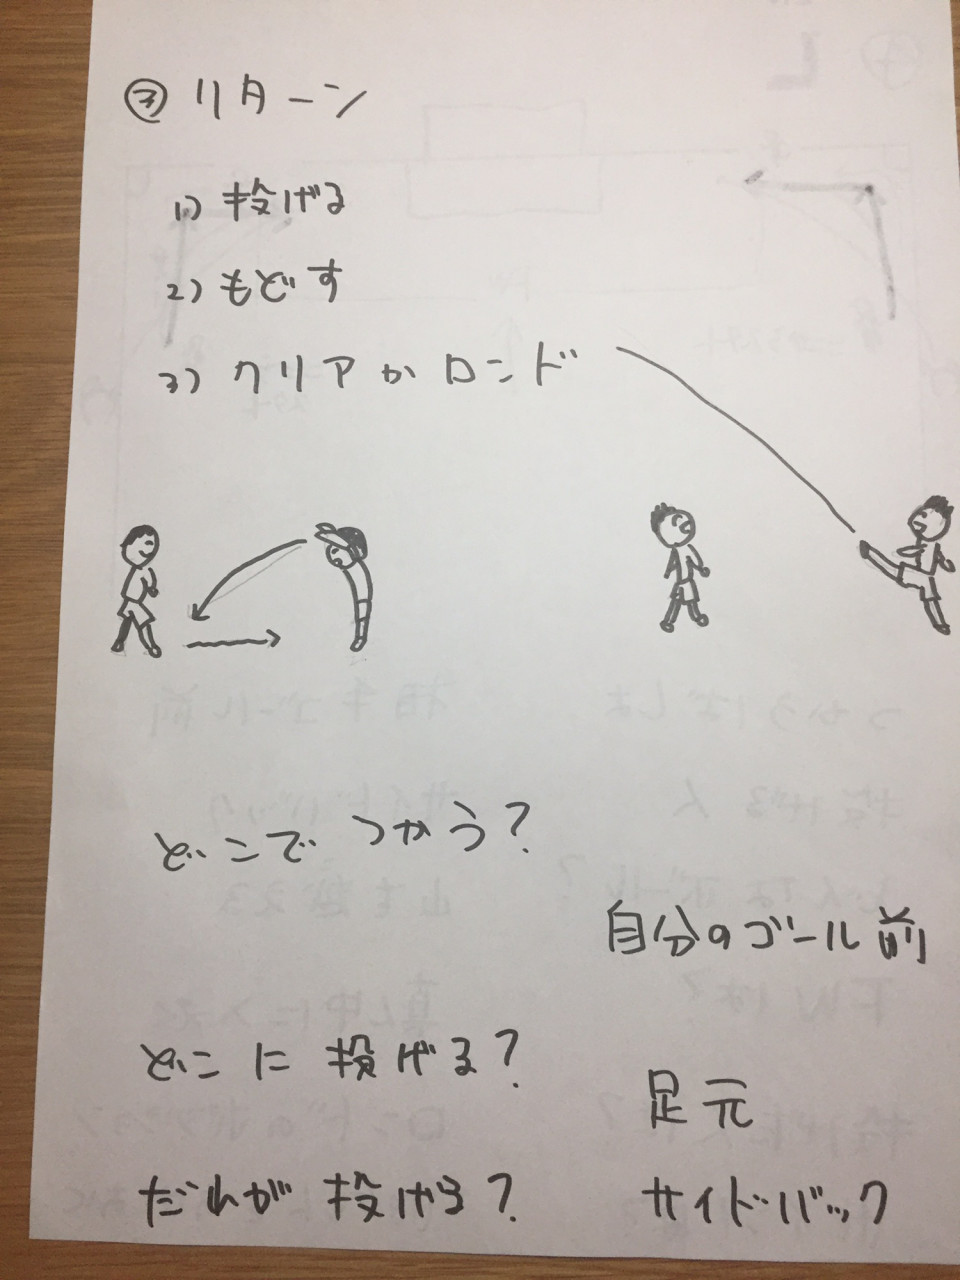 ③ リターン
1) 投げる
2) もどす
3) クリアかロンド
どこでつかう?
自分のゴール前
どこに投げる?
足元
だれが投げる?
サイドバック